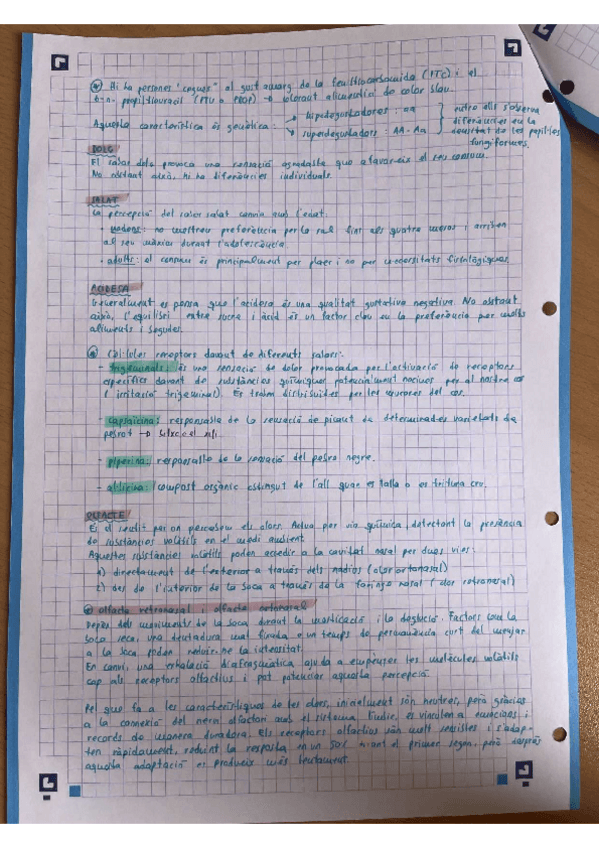 Hi ha persones "cegues" al gust amarg de la feniltiocarbamida (PTC) i el
6-n-propiltiouracil (PTU o PROP) → toleraut alimentació de color blau.
Aquesta característica és genètica:
hipodegustadores: aa
superdegustadors: AA - Aa
entre ells s'observa
diferències en la
densitat de les papil·les
fungiformes.
DOLÇ
El sabor dolç provoca una sensació agradable que afavoreix el seu consum.
No obstant això, hi ha diferències individuals.
SALAT
La percepció del sabor salat canvia amb l'edat:
· nadons: no mostren preferència per la sal fins als quatre mesos i arriben
al seu màxim durant l'adolescència.
· adults: el consum és principalment per plaer i no per necessitats fisiològiques.
ACIDESA
Generalment es pensa que l'acidesa és una qualitat gustativa negativa. No obstant
això, l'equilibri entre sucre i àcid és un factor clau en la preferència per molts
aliments i begudes.
Cèl·lules receptors davant de diferents sabors:
- trigeminals: és una sensació de dolor provocada per l'activació de receptors
específics davant de substàncies químiques potencialment nocives per al nostre
(irritació trigeminal). Es troben distribuïdes per les mucoses del cos.
- capsaicina: responsable de la sensació de picant de determinades varietats de
pebrot →
- piperina: responsable de la sensació del pebre negre.
- al·licina: compost orgànic extingut de l'all quan es talla o es tritura cru.
OLFACTE
És el sentit per on percebem els olors. Actua per via química, detectant la presència
de substàncies volàtils en el medi ambient.
Aquestes substàncies volàtils poden accedir a la cavitat nasal per dues vies:
1) directament de l'exterior a través dels nadius (olor ortonasal)
2) des de l'interior de la boca a través de la faringe nasal (olor retronasal)
olfacte retronasal i olfacte ortonasal
Depèn dels moviments de la boca durant la masticació i la deglució. Factors com la
boca seca, una dentadura mal fixada o un temps de permanència curt del menjar
a la boca poden reduir-ne la intensitat.
En canvi, una exhalació diafragmàtica ajuda a empènyer les molècules volàtils
cap als receptors olfactius i pot potenciar aquesta percepció.
Pel que fa a les característiques de les olors, inicialment són neutres, però gràcies
a la connexió del nervi olfactori amb el sistema límbic, es vinculen a emocions i
records de manera duradora. Els receptors olfactius són molt sensibles i s'adap-
ten ràpidament, reduint la resposta en un 50% durant el primer segon, però després
aquesta adaptació es produeix més lentament.